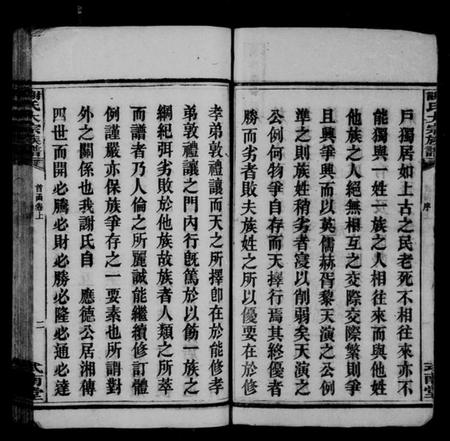 戶獨居如上古之民老死不相往來亦不
能獨與一姓一族之人相往來而與他姓
他族之人絕無相互之交際交際繁則爭
且興爭興而以英儒赫胥黎天演之公例
準之則族姓稍劣者寖以削弱矣天演之
公例何物爭自存而天擇行焉其終優者
勝而劣者敗夫族姓之所以優要在於修
序
謝氏大宗族譜
式南堂
孝弟敦禮讓而天之所擇卽在於能修孝
弟敦禮讓之門內行旣篤於以飭一族之
綱紀弭劣敗於他族故族者人類之所萃
而譜者乃人倫之所麗誠能繼續修訂體
例謹嚴亦保族爭存之一要素也所謂對
外之關係也我謝氏自　應德公居湘傳
四世而開必騰必財必勝必隆必通必達
謝氏大宗族譜
首函卷上
二
式南堂